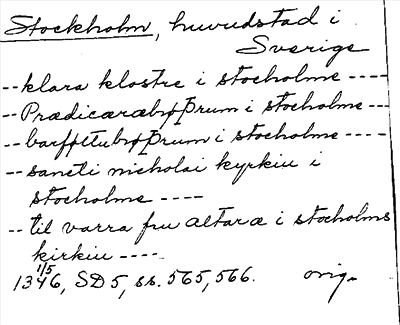 Stockholm, huvudstad i
Sverige
-- klara klostre i stocholme ----
-- Prædicaræbrøþrum i stocholme ---
-- barføttubrøþrum i stocholme ----
-- sancti nicholai kyrkiu i
stocholme ----
-- til varra fru altaræ i stocholms
kirkiu ----
1346 1/5, SD 5, ss. 565, 566. orig.